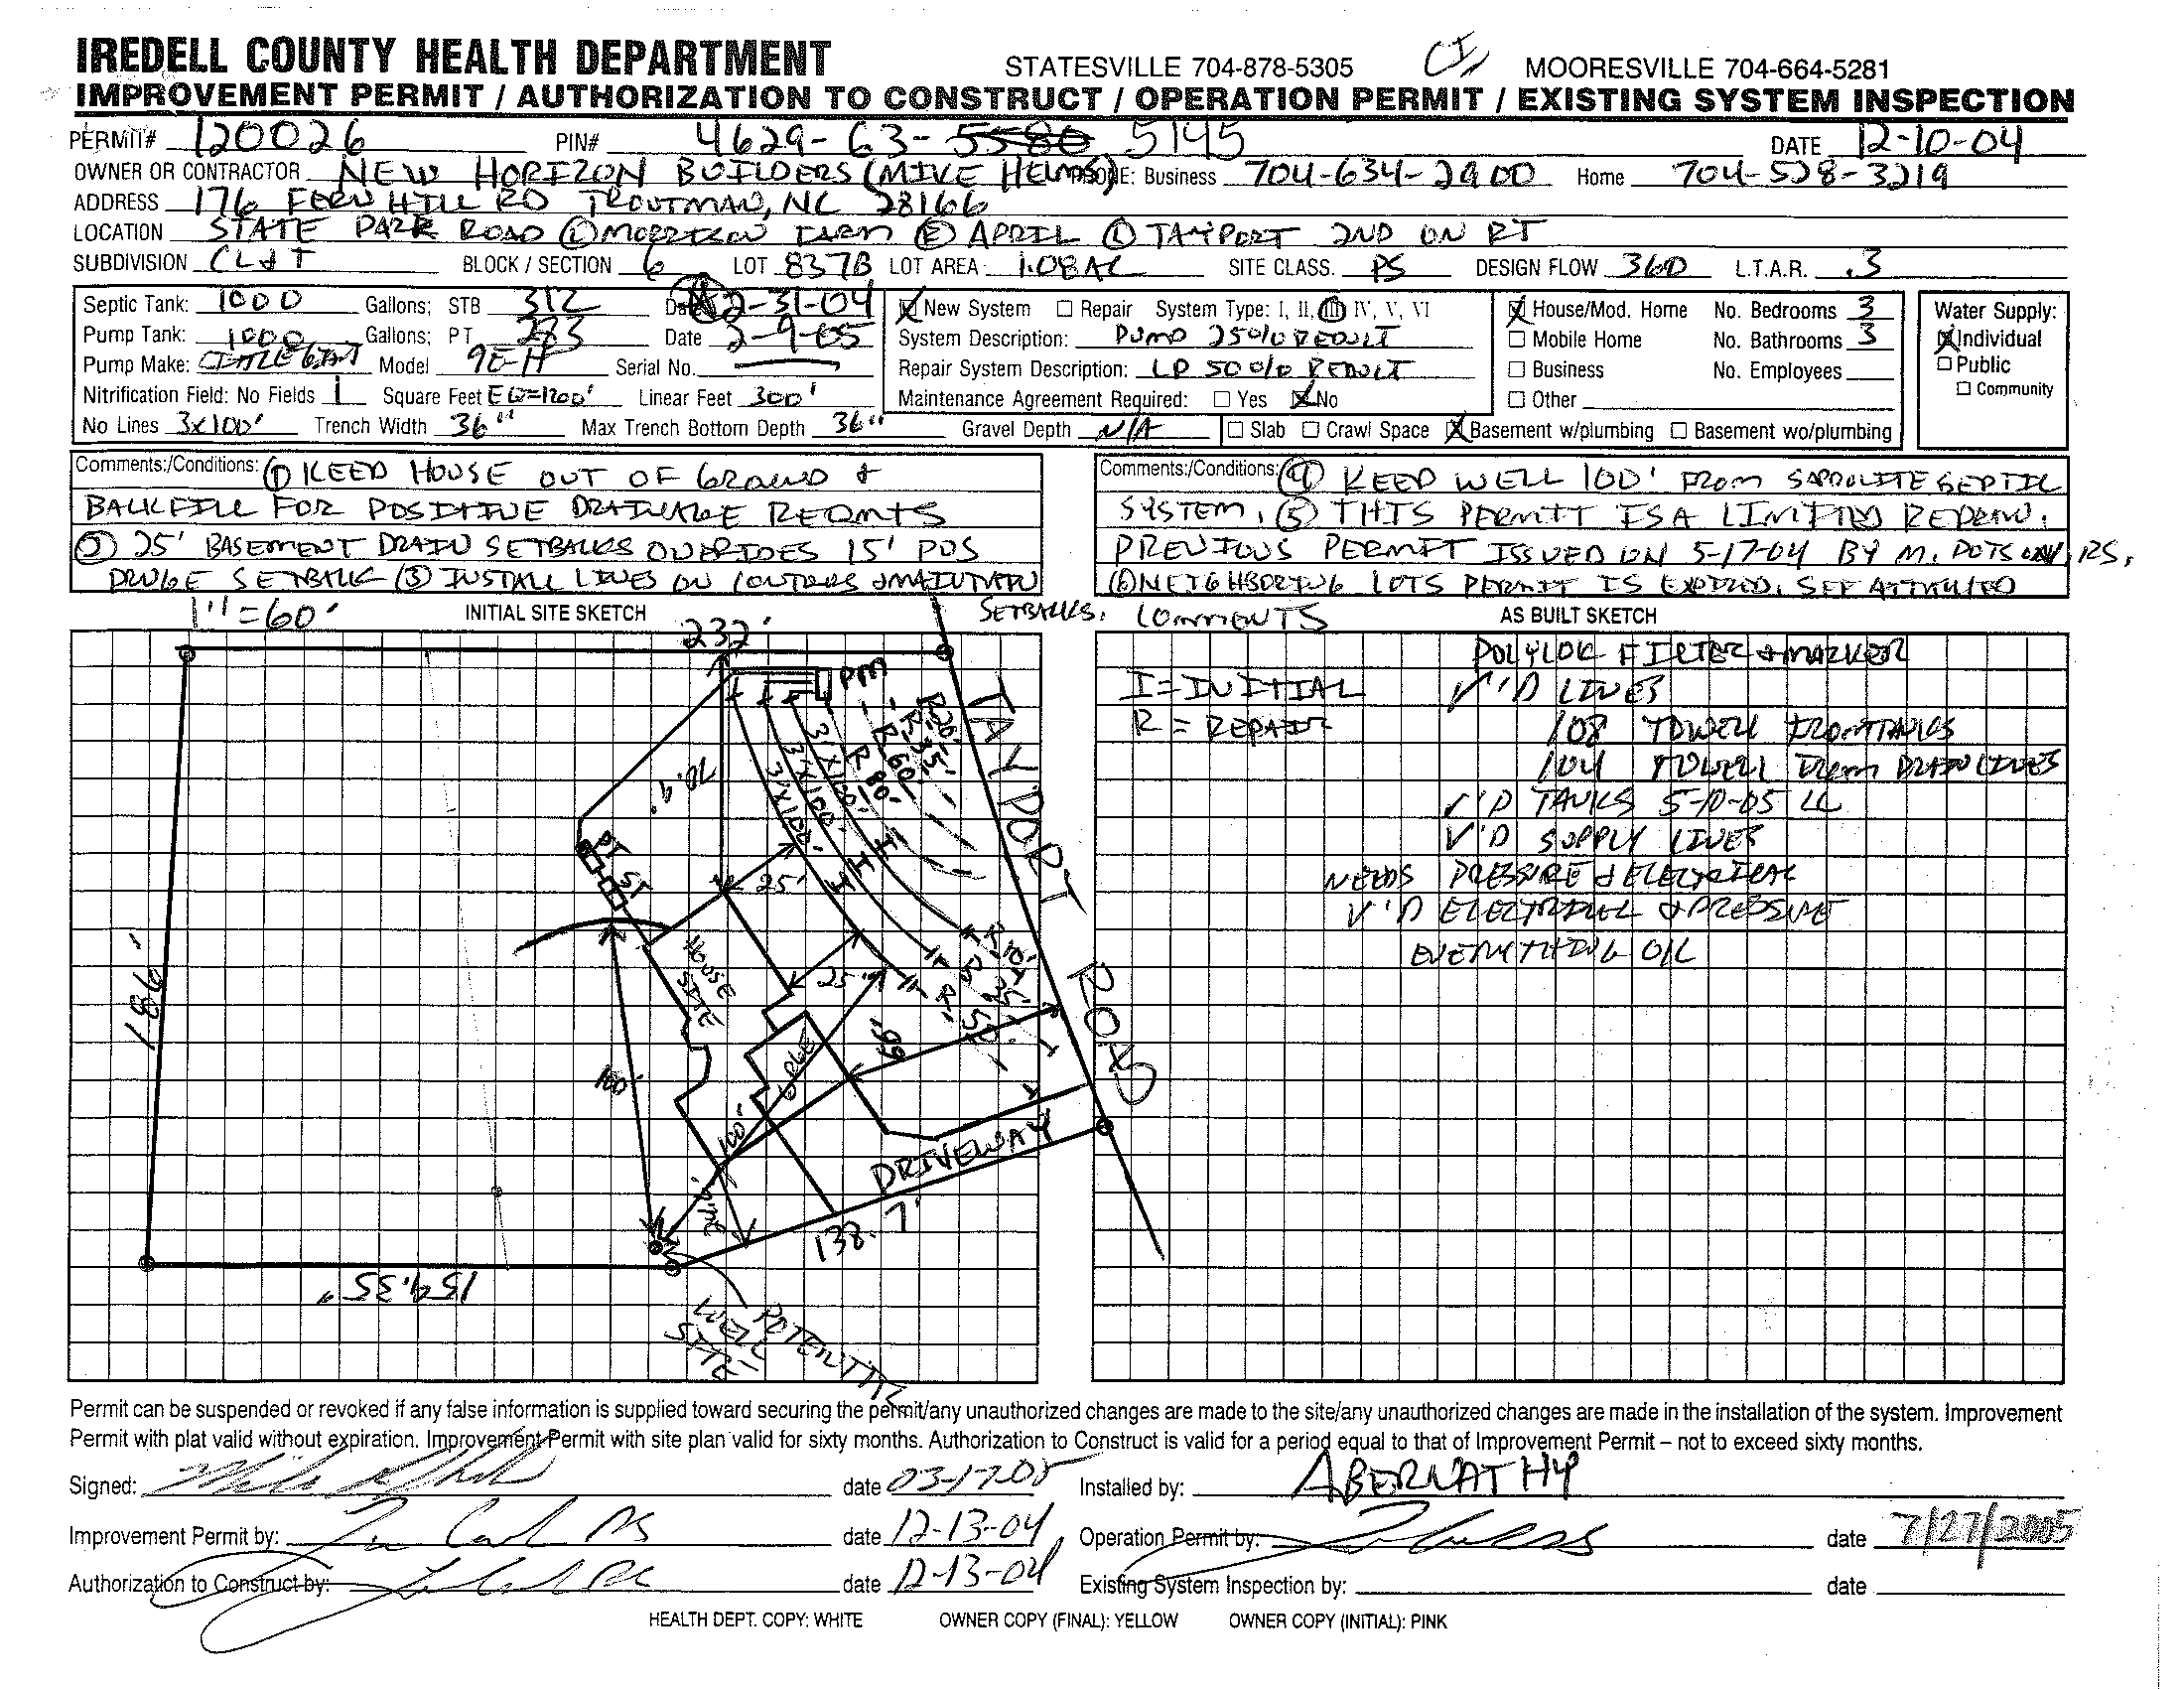 IREDELL COUNTY HEALTH DEPARTMENT STATESVILLE 704-878-5305 MOORESVILLE 704-664-5281
IMPROVEMENT PERMIT / AUTHORIZATION TO CONSTRUCT / OPERATION PERMIT / EXISTING SYSTEM INSPECTION
PERMIT# 120026 PIN# 4629-63-5580 5145 DATE 12-10-04
OWNER OR CONTRACTOR NEW HORIZON BUILDERS (MIKE HELMS) PHONE: Business 704-634-2900 Home 704-528-3219
ADDRESS 176 FERN HILL RD TROUTMAN, NC 28166
LOCATION STATE PARK ROAD (L) MORRISON FARM (R) APRIL (L) TAYPORT 2ND ON RT
SUBDIVISION CL&T BLOCK / SECTION 6 LOT 837B LOT AREA 1.08AC SITE CLASS. PS DESIGN FLOW 360 L.T.A.R. .3
Septic Tank: 1000 Gallons; STB 312 Date 12-31-04
Pump Tank: 1000 Gallons; PT 233 Date 2-9-05
Pump Make: LITTLE GIANT Model 9E-H Serial No.
Nitrification Field: No Fields 1 Square Feet EQ=1200' Linear Feet 300'
No Lines 3x100' Trench Width 36" Max Trench Bottom Depth 36" Gravel Depth N/A
New System Repair System Type: I, II, III, IV, V, VI
System Description: PUMP 25% REDUCT
Repair System Description: LP 50% REDUCT
Maintenance Agreement Required: Yes No
Slab Crawl Space Basement w/plumbing Basement wo/plumbing
House/Mod. Home No. Bedrooms 3
Mobile Home No. Bathrooms 3
Business No. Employees
Other
Water Supply:
Individual
Public
Community
Comments:/Conditions: (1) KEEP HOUSE OUT OF GROUND &
BACKFILL FOR POSITIVE DRAINAGE REQMTS
(2) 25' BASEMENT DRAIN SETBACKS OVERIDES 15' POS
DRNGE SETBACK (3) INSTALL LINES ON CONTOURS & MAINTAIN
SETBACKS.
Comments:/Conditions: (4) KEEP WELL 100' FROM SAPROLITE SEPTIC
SYSTEM. (5) THIS PERMIT IS A LIMITED REDRAW.
PREVIOUS PERMIT ISSUED ON 5-17-04 BY M. RS.
(6) NEIGHBORING LOTS PERMIT IS EXPIRED. SEE ATTACHED
COMMENTS
1"=60' INITIAL SITE SKETCH
232'
PM
TAYPORT ROAD
R 20'
R 35'
R 60'
R 80'
3'X100'
3'X100'
3'X100'
I
I
I
70.9'
PT
ST
25'
25'
HOUSE
SITE
R 10'
R 35'
R 52'
66'
186'
100'
100'
DRIVEWAY
138.7'
159.35'
POTENTIAL
WELL
SITE
AS BUILT SKETCH
POLYLOK FILTER & MARKER
I=INITIAL
R = REPAIR
V'D LINES
108 TO WELL FROM TANKS
104 TO WELL FROM DRAIN LINES
V'D TANKS 5-10-05 LC
V'D SUPPLY LINES
NEEDS PRESSURE & ELECTRICAL
V'D ELECTRICAL & PRESSURE
EVERYTHING OK
Permit can be suspended or revoked if any false information is supplied toward securing the permit/any unauthorized changes are made to the site/any unauthorized changes are made in the installation of the system. Improvement
Permit with plat valid without expiration. Improvement Permit with site plan valid for sixty months. Authorization to Construct is valid for a period equal to that of Improvement Permit – not to exceed sixty months.
Signed: date 03-17-05 Installed by: ABERNATHY
Improvement Permit by: date 12-13-04 Operation Permit by: date 7/27/2005
Authorization to Construct by: date 12-13-04 Existing System Inspection by: date
HEALTH DEPT. COPY: WHITE OWNER COPY (FINAL): YELLOW OWNER COPY (INITIAL): PINK